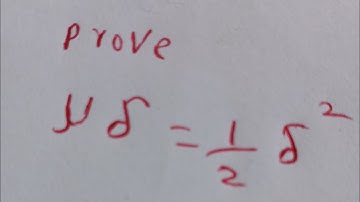 Prove
μδ = 1/2 δ²